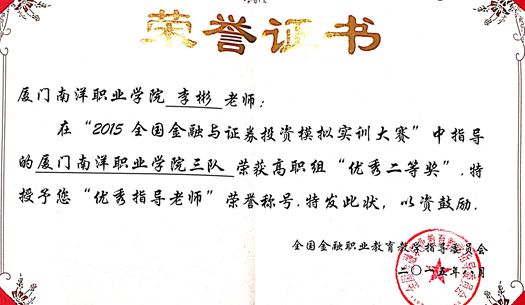 荣誉证书
厦门南洋职业学院 李彬 老师：
在“2015 全国金融与证券投资模拟实训大赛”中指导
的厦门南洋职业学院三队荣获高职组“优秀二等奖”.特
授予您“优秀指导老师”荣誉称号.特发此状，以资鼓励.
全国金融职业教育教学指导委员会
二〇一五年 月